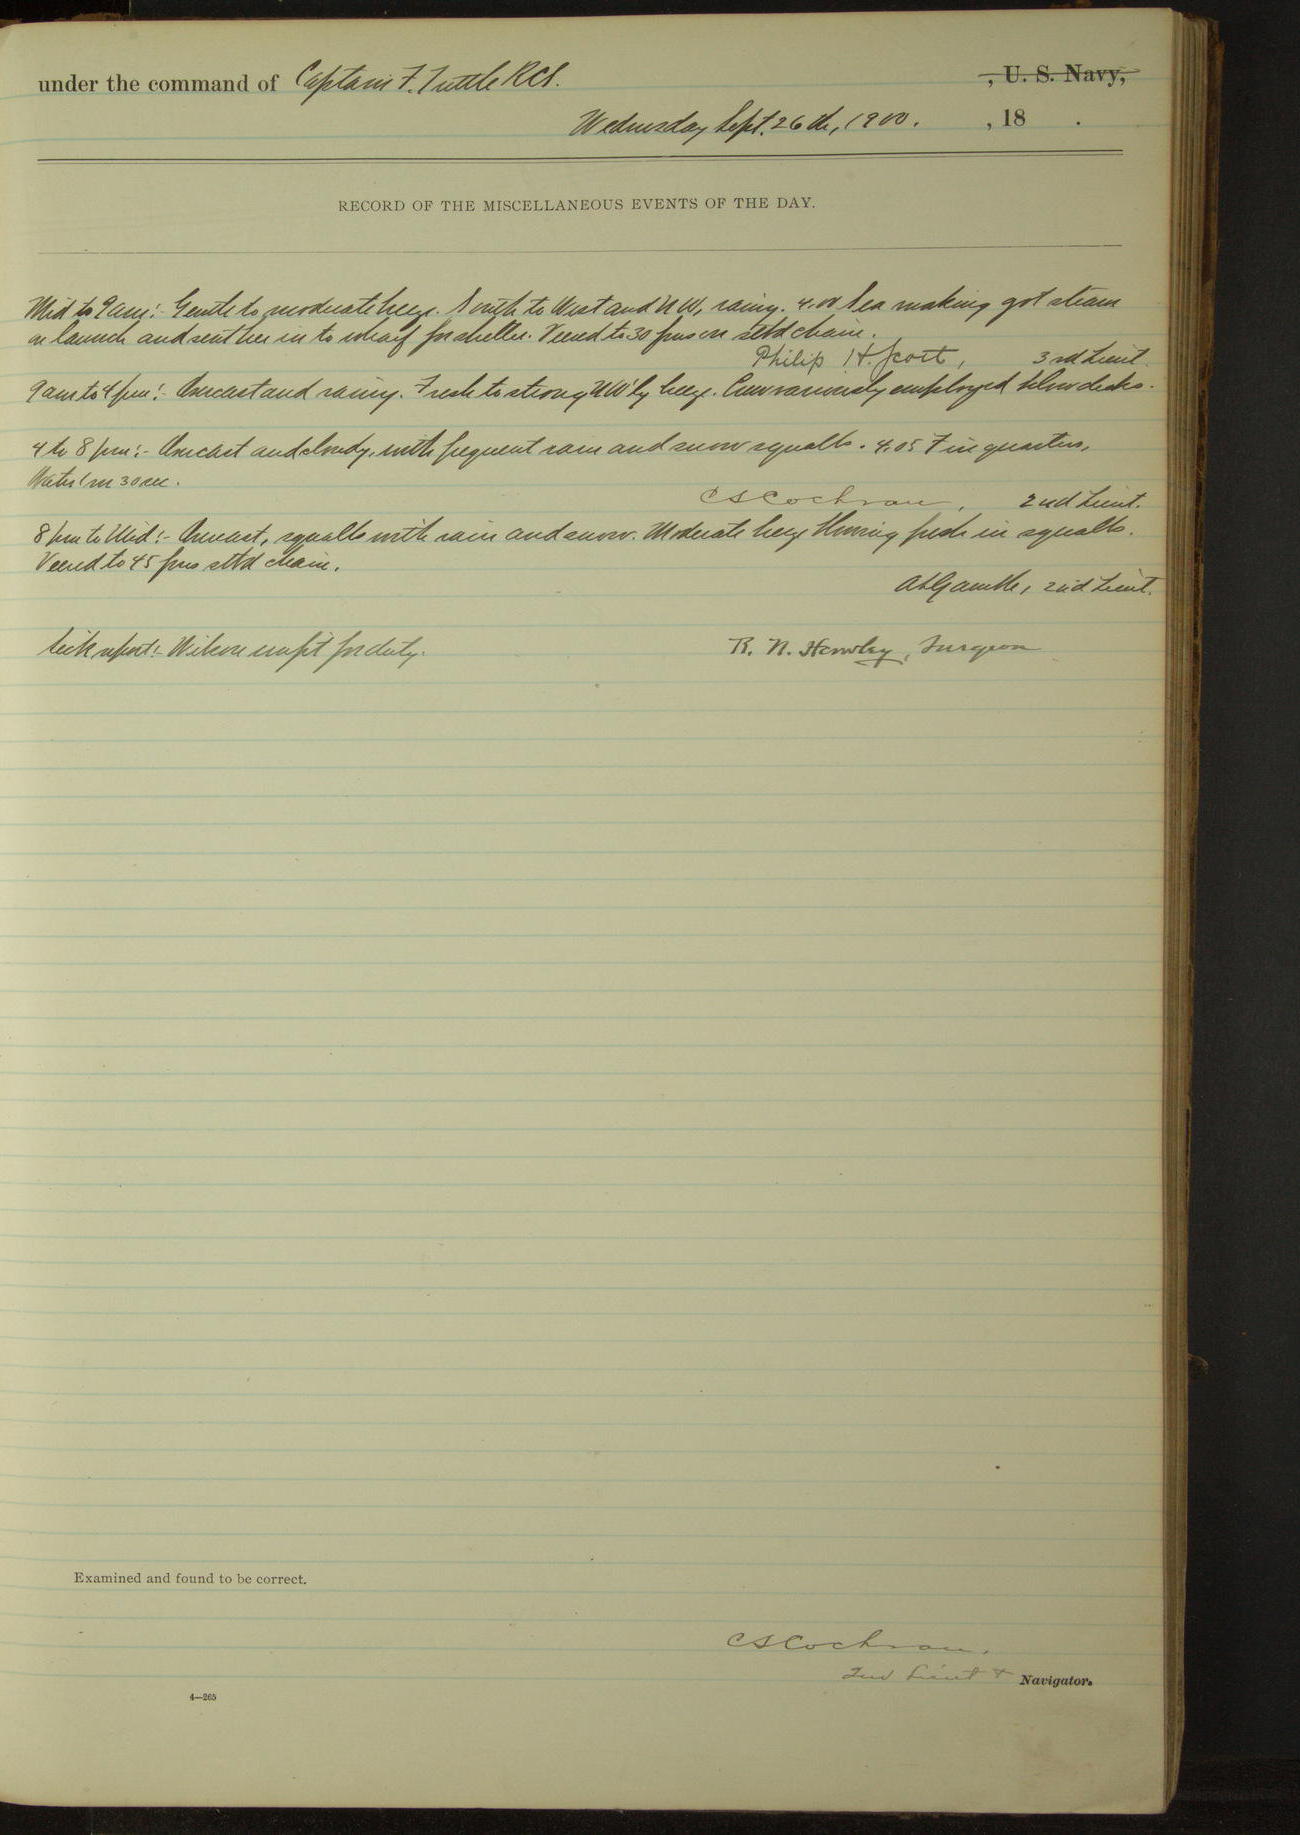 under the command of Captain F. Tuttle RCS. , U. S. Navy,
Wednesday Sept. 26th, 1900. , 18 .
RECORD OF THE MISCELLANEOUS EVENTS OF THE DAY.
Mid to 9am:- Gentle to moderate breeze. South to West and NW, rainy. 4.00 Sea making got steam
on launch and sent her in to wharf for shelter. Veered to 30 fms on stbd chain.
Philip H. Scott, 3rd Lieut.
9am to 4pm:- Overcast and rainy. Fresh to strong NW'ly breeze. Crew variously employed below decks.
4 to 8pm:- Overcast and cloudy, with frequent rain and snow squalls. 4.05 Fire quarters,
Water 1m 30 sec.
CSCochran, 2nd Lieut.
8pm to Mid:- Overcast, squalls with rain and snow. Moderate breeze blowing fresh in squalls.
Veered to 45 fms stbd chain.
ALGamble, 2nd Lieut.
Sick report:- Wilson unfit for duty. R. N. Hawley, Surgeon
Examined and found to be correct.
CSCochran,
2nd Lieut + Navigator.
4—265